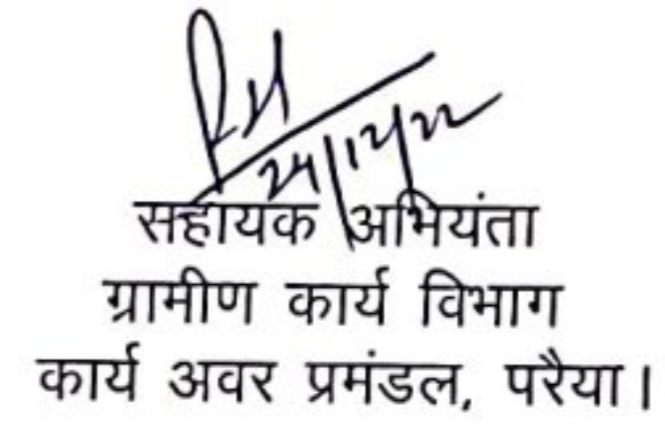 24/12/22
सहायक अभियंता
ग्रामीण कार्य विभाग
कार्य अवर प्रमंडल, परैया।